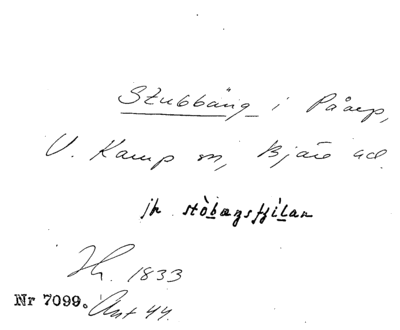 Stubbäng i Påarp,
V. Karup sn, Bjäre hd.
jfr stòbægsfjílar
Jh. 1833
Nr 7099. Ant 44.